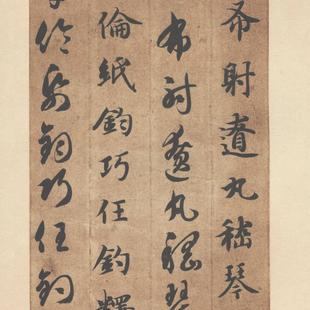 布射遼丸嵇琴
布射遼丸嵇琴
倫紙鈞巧任釣釋
倫紙鈞巧任釣